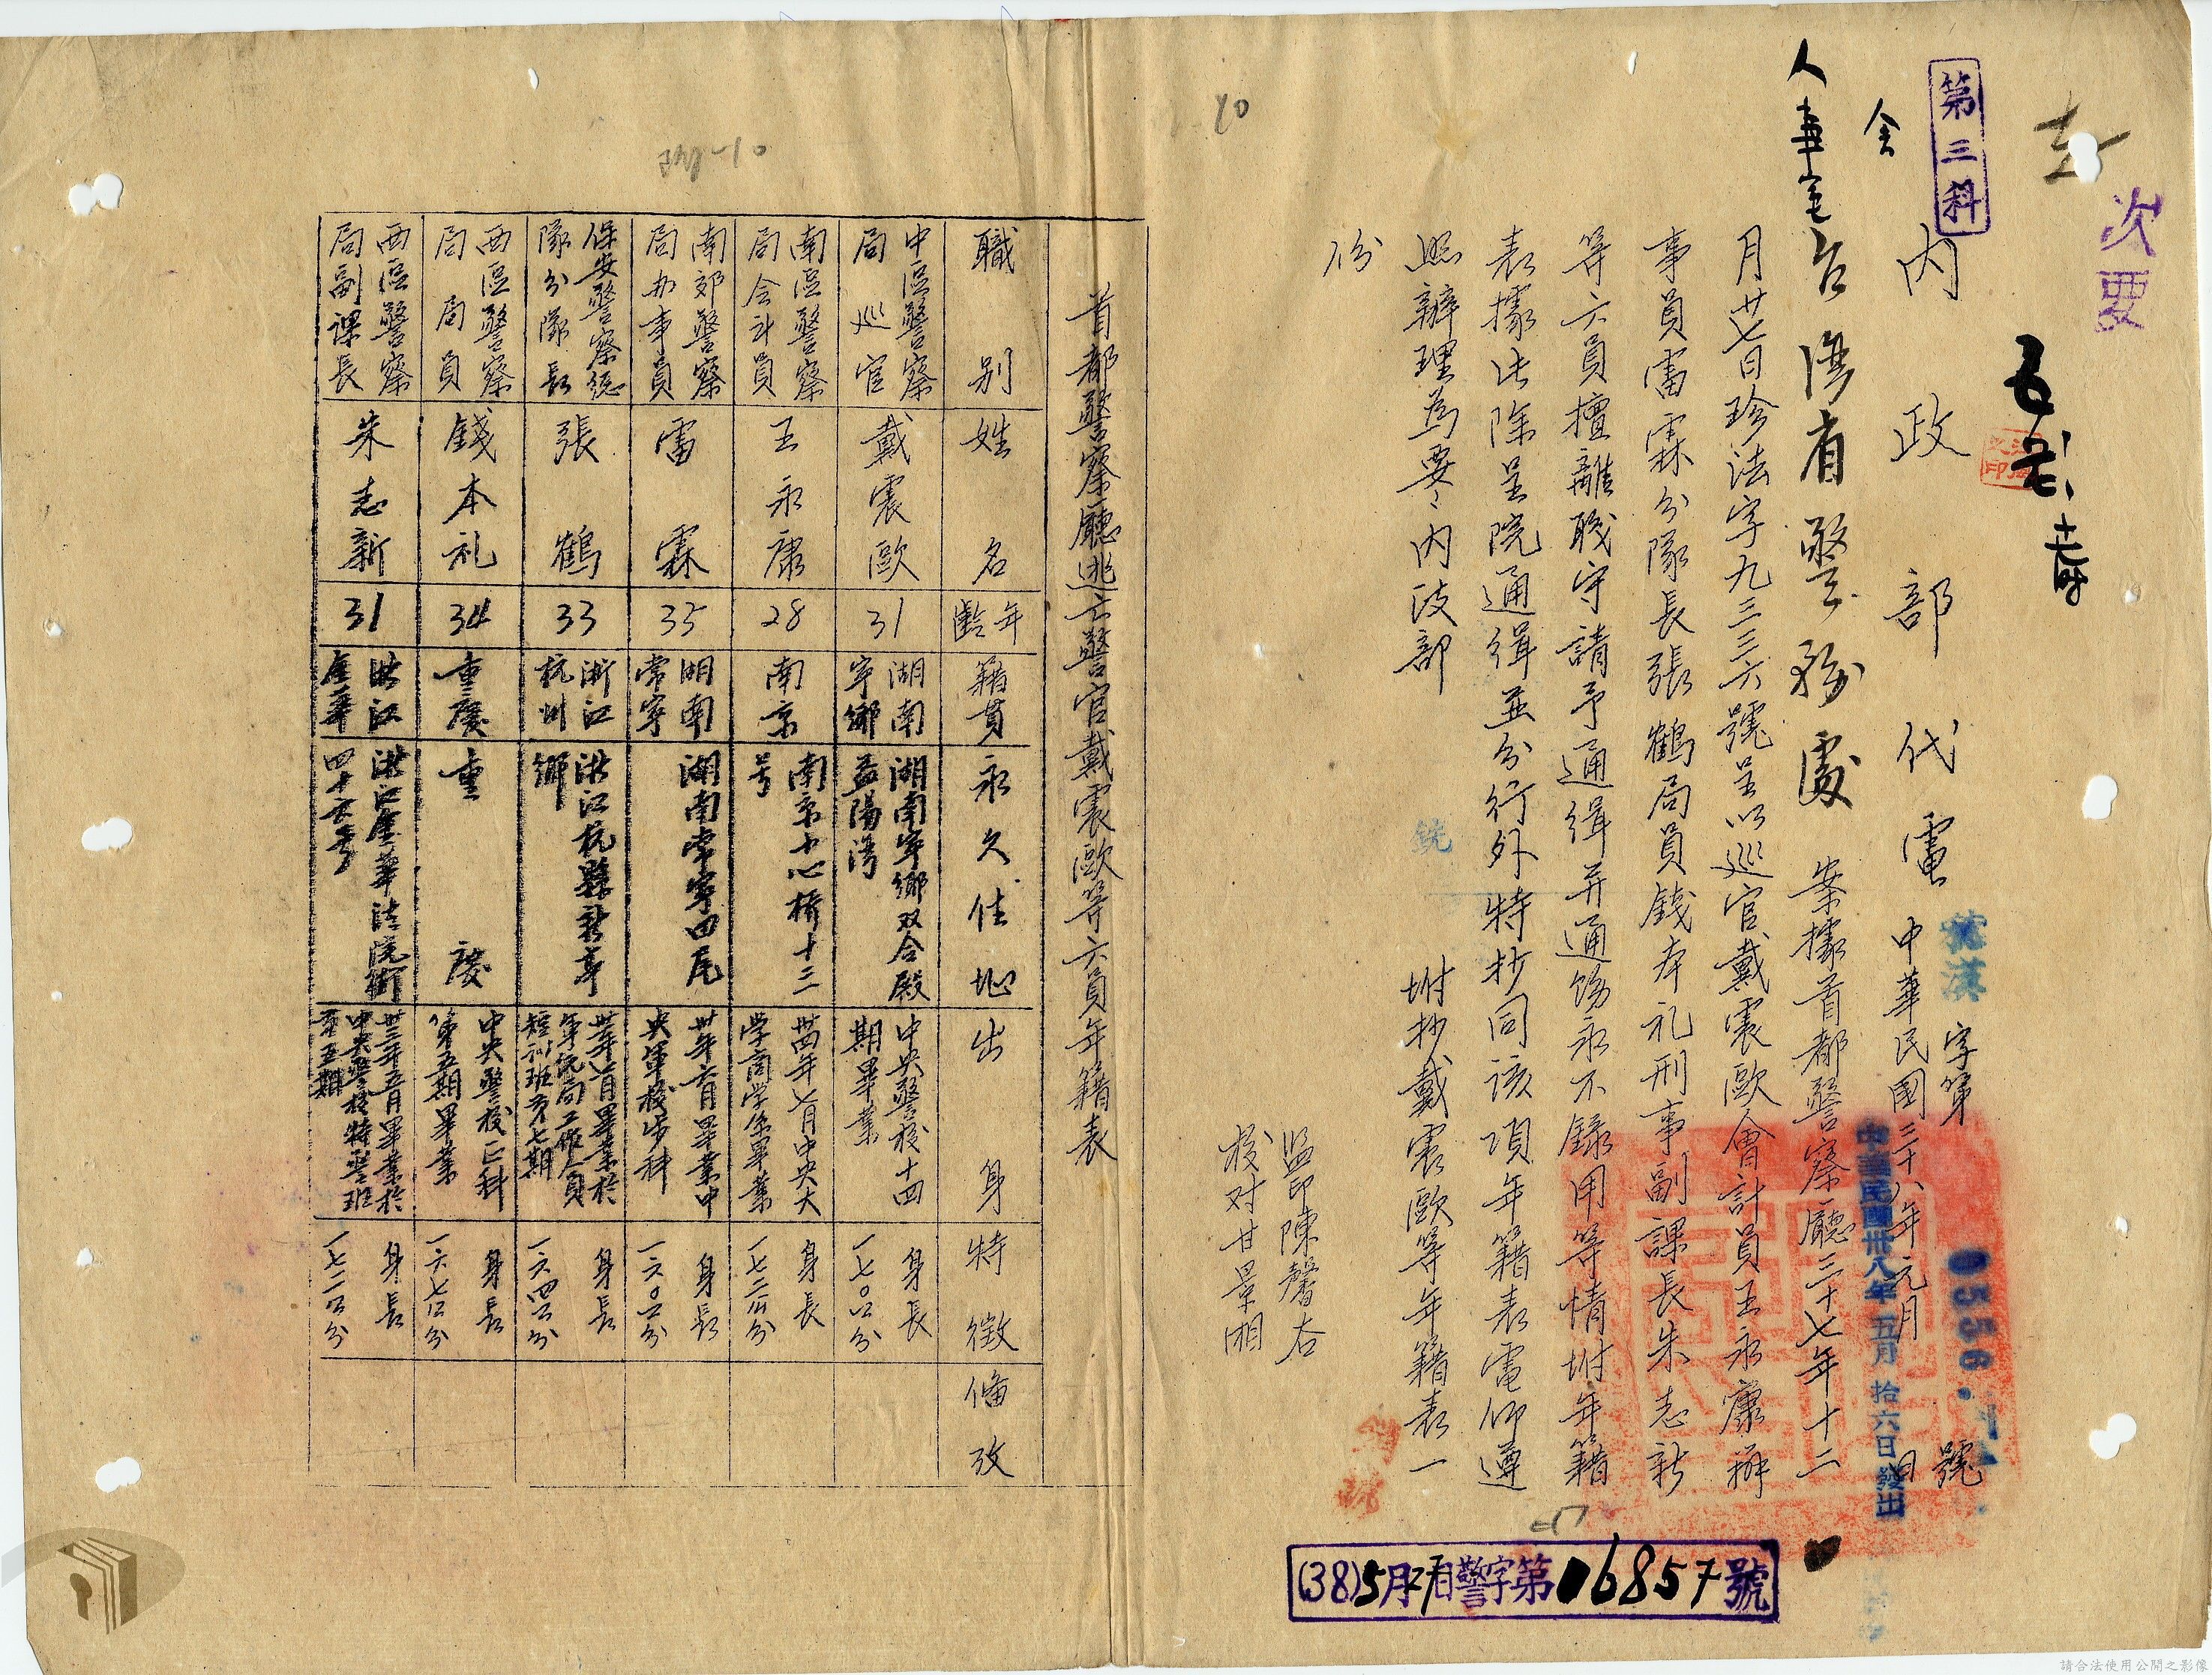 次要
第三科
會
人事室
內政部代電
中華民國三十八年元月 日
字第 號
0556
中華民國卅八年五月拾六日發出
台灣省警務處 案據首都警察廳三十七年十二
月廿七日珍法字九三三六號呈以巡官戴震歐會計員王永康辦
事員雷霖分隊長張鶴局員錢本礼刑事副課長朱志新
等六員擅離職守請予通緝并通飭永不錄用等情坿年籍
表據此除呈院通緝並分行外特抄同該項年籍表電仰遵
照辦理為要内政部 坿抄戴震歐等年籍表一
份
監印陳馨右
校对甘景湘
(38)5月27日警字第16857號
10
首都警察廳逃亡警官戴震歐等六員年籍表
職別 姓名 年齡 籍貫 永久住址 出身 特徵 備攷
中區警察局巡官 戴震歐 31 湖南寧鄉 湖南寧鄉双合殿益陽灣 中央警校十四期畢業 身長一七〇公分
南區警察局会計員 王永康 28 南京 南京小心橋十三号 卅四年七月中央大学商学系畢業 身長一七二公分
南郊警察局办事員 雷霖 35 湖南常寧 湖南常寧田尾 卅年六月畢業中央軍校步科 身長一六〇公分
保安警察總隊分隊長 張鶴 33 浙江杭州 浙江杭縣新亭鄉 身長一六四公分
西區警察局局員 錢本礼 34 重慶 重慶 中央警校正科第五期畢業 身長一六七公分
西區警察局副課長 朱志新 31 浙江金華 浙江金華法院街四十六号 卅三年五月畢業於中央警校特警班第五期 身長一七二公分
請合法使用公開之影像